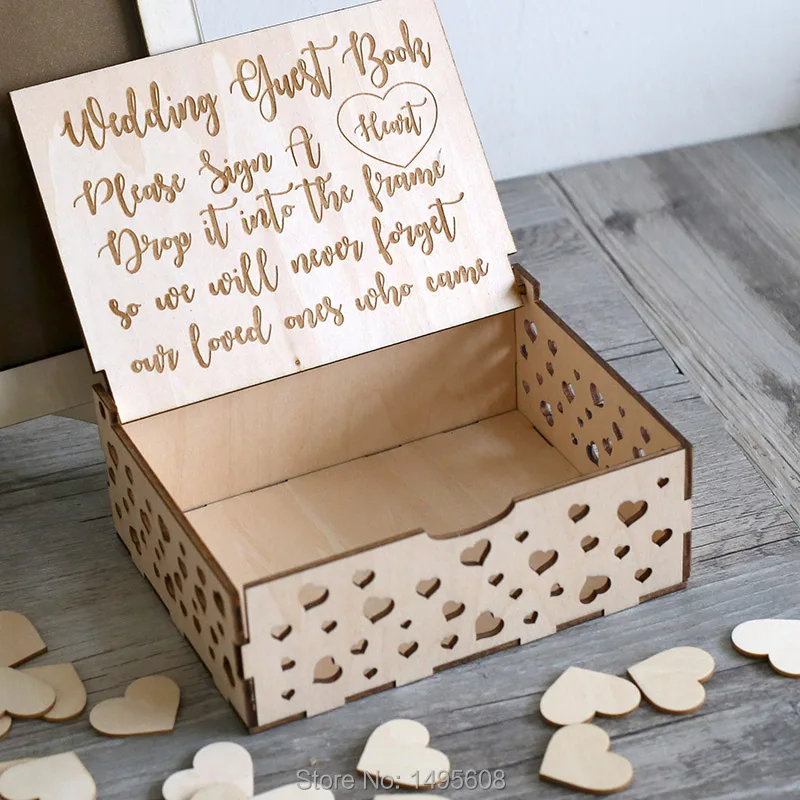 Wedding Guest Book
Please Sign A Heart
Drop it into the frame
so we will never forget
our loved ones who came
Store No: 1495608